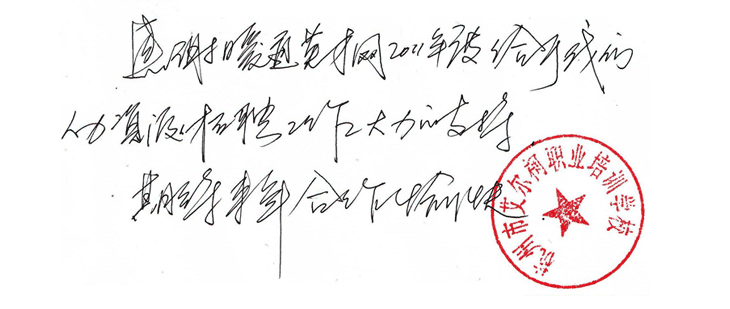 感谢暖通英才网2011年度给予我们
人力资源招聘工作大力的支持
期待来年合作愉快
杭州市艾尔柯职业培训学校